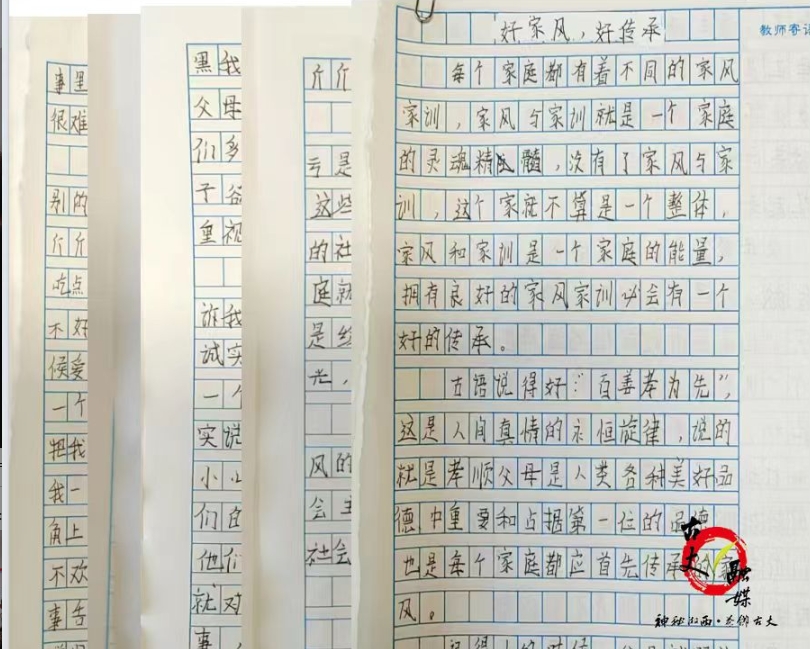 好家风，好传承
教师寄语
每个家庭都有着不同的家风
家训，家风与家训就是一个家庭
的灵魂精髓，没有了家风与家
训，这个家庭不算是一个整体，
家风和家训是一个家庭的能量，
拥有良好的家风家训必会有一个
好的传承。
古语说得好：“百善孝为先”，
这是人间真情的永恒旋律，说的
就是孝顺父母是人类各种美好品
德中重要和占据第一位的品德
也是每个家庭都应首先传承的家
风。
斤斤
亏是
这些
的社
庭就
是给
光，
风的
会主
社会
黑我
父母
们多
子谷
重视
诉我
诚实
一个
实说
小心
们的
他们
就对
事
事里
很难
别的
斤斤
吃点
不好
候爱
一个
把我
我一
角上
不欢
事告
古丈
融媒
神秘湘西·茶乡古丈